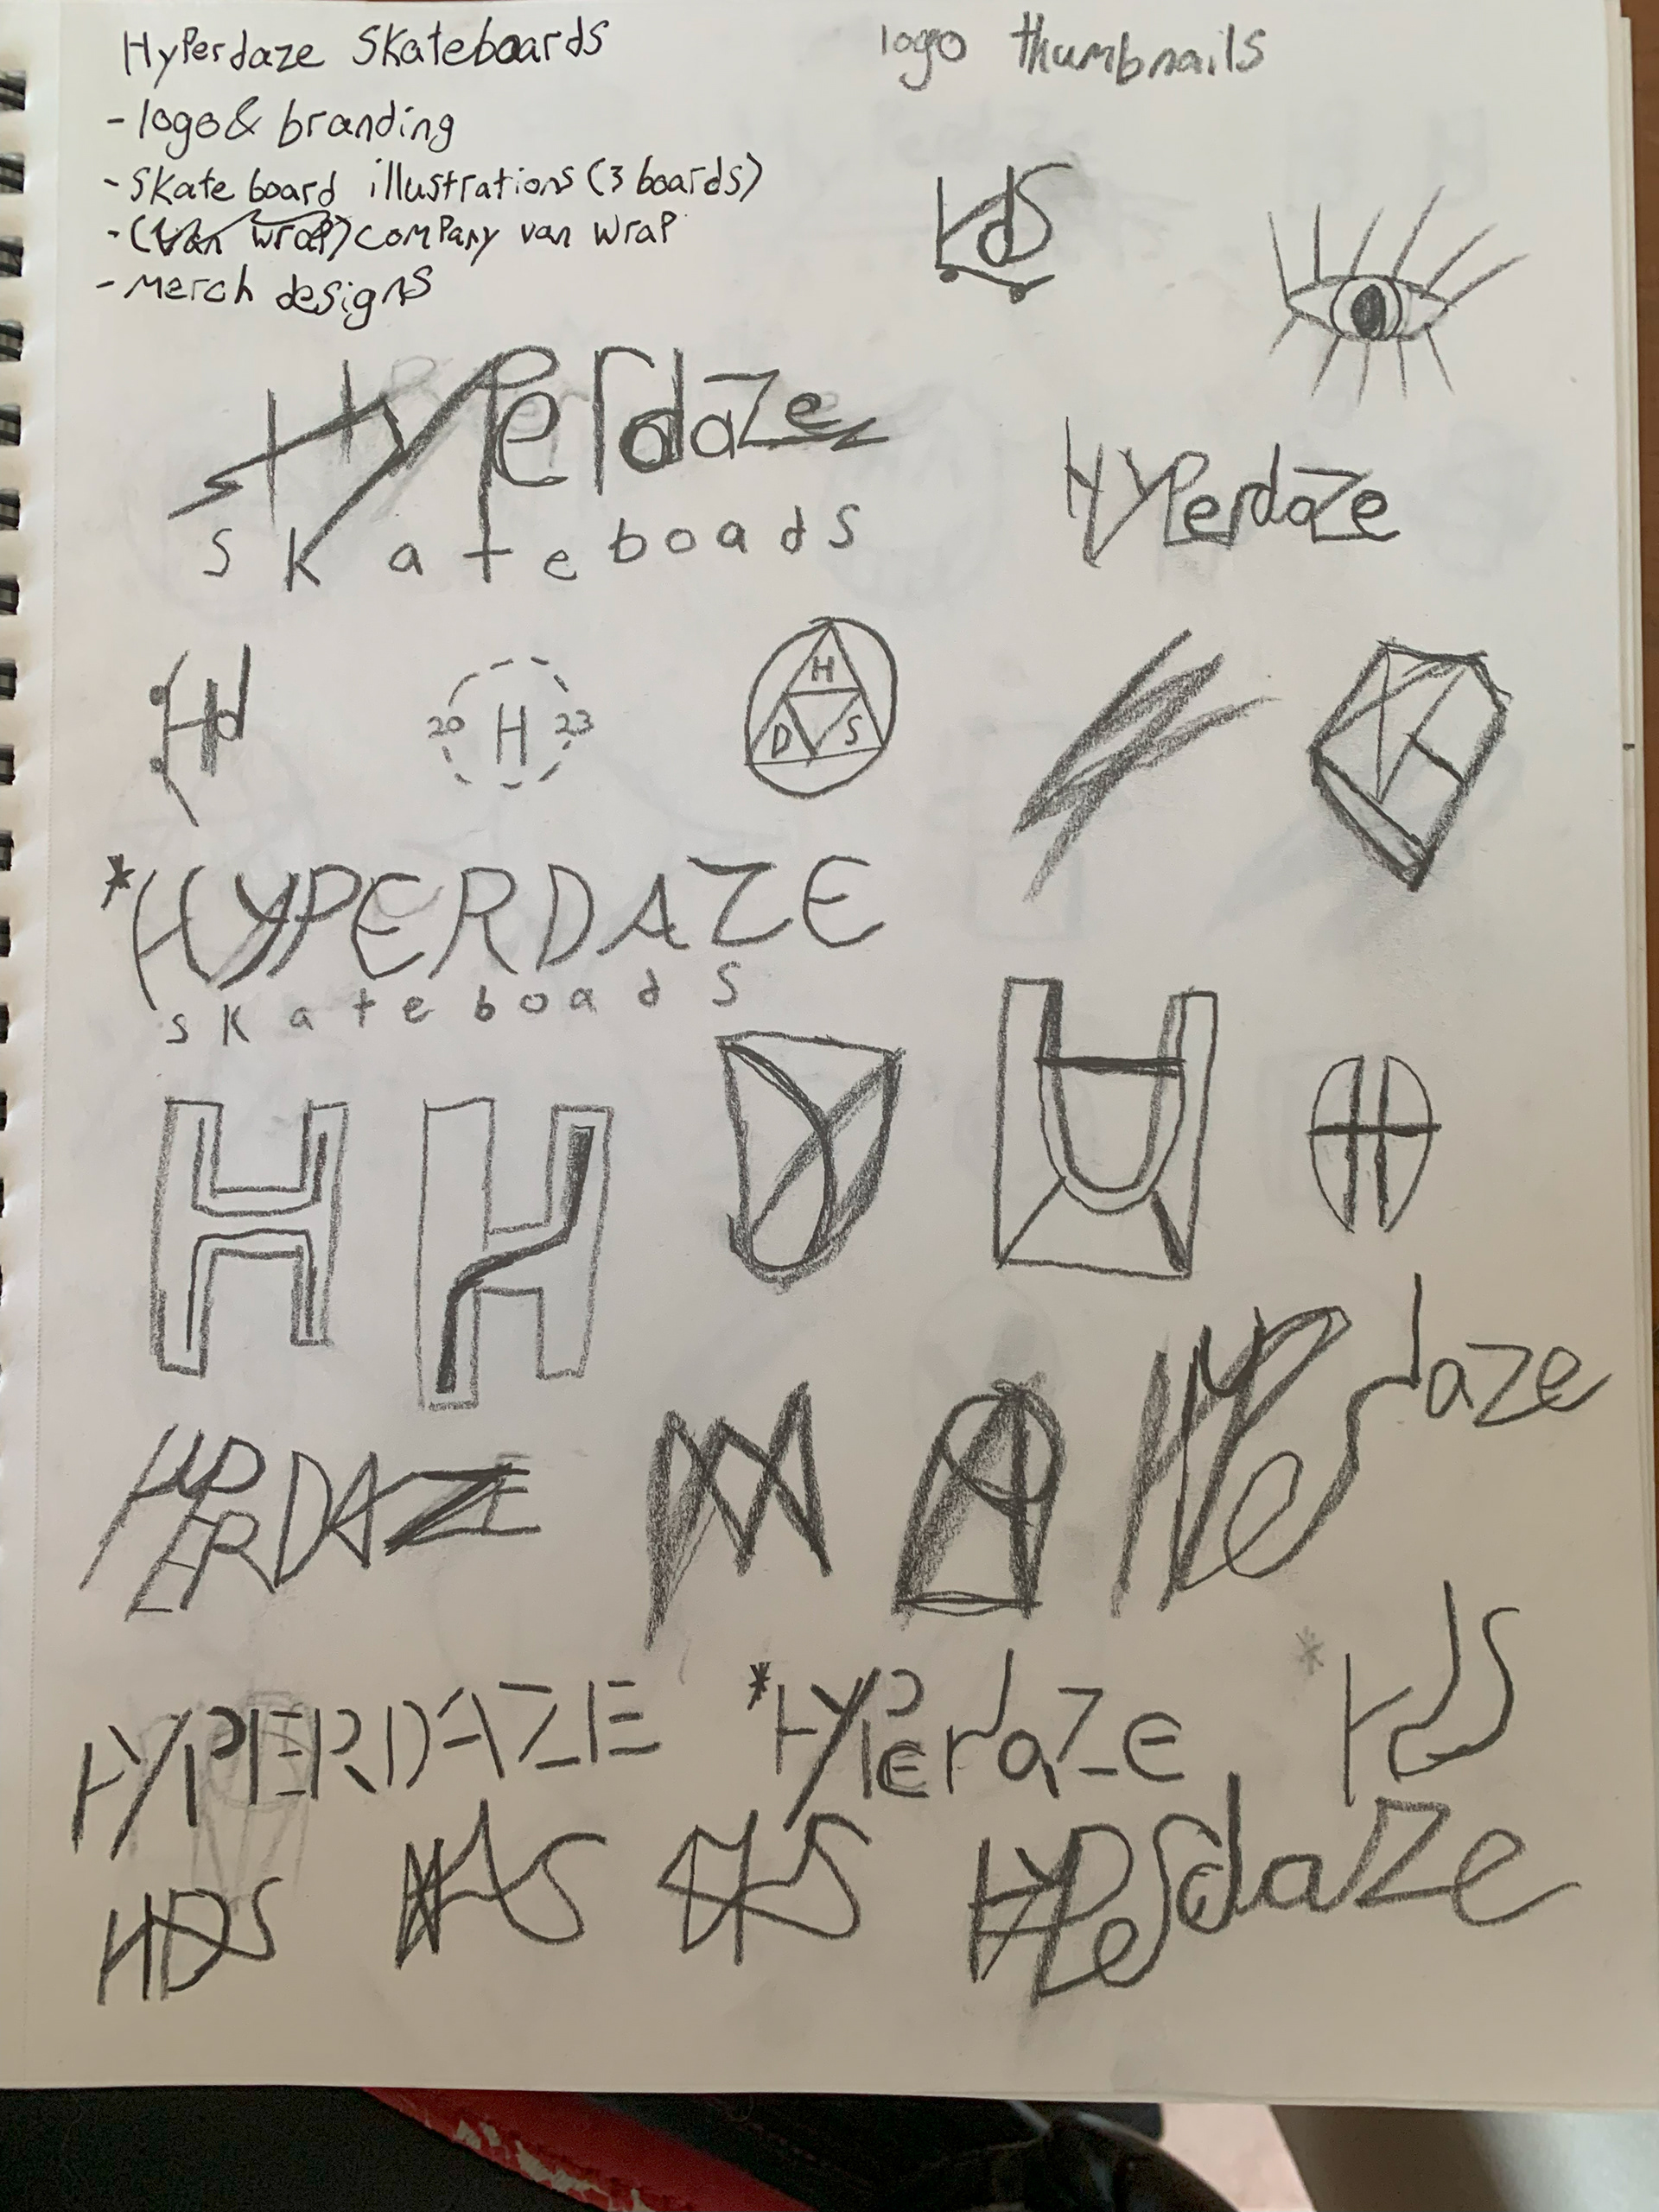 Hyperdaze Skateboards
logo thumbnails
- logo & branding
- Skate board illustrations (3 boards)
- (Van wrap) company van wrap
- merch designs
HdS
Hyperdaze
skateboads
Hyperdaze
Hd
20 H 23
H
D S
*HYPERDAZE
skateboads
H
H
H
HYPERDAZE
Hyperdaze
HYPERDAZE
*HyPerdaZE
*HdS
HDS
Hyperdaze